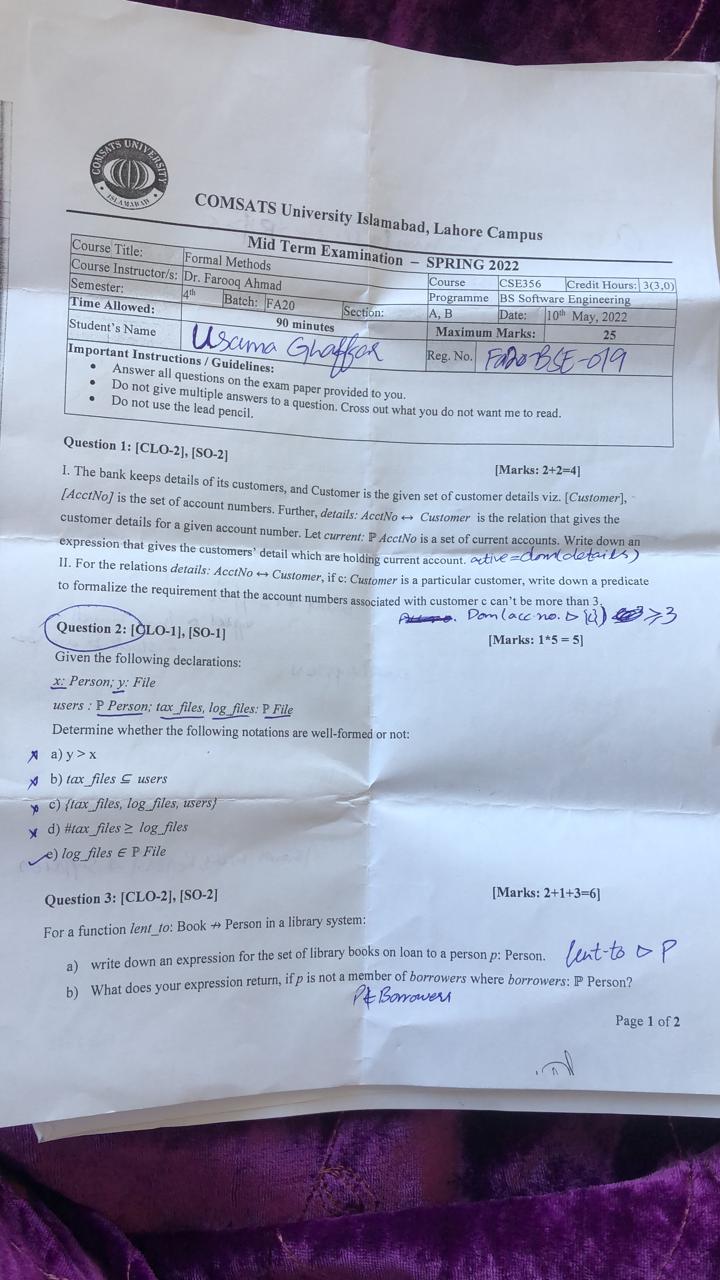 COMSATS UNIVERSITY
ISLAMABAD
COMSATS University Islamabad, Lahore Campus
Mid Term Examination – SPRING 2022
Course Title: Formal Methods Course CSE356 Credit Hours: 3(3,0)
Course Instructor/s: Dr. Farooq Ahmad Programme BS Software Engineering
Semester: 4th Batch: FA20 Section: A, B Date: 10th May, 2022
Time Allowed: 90 minutes Maximum Marks: 25
Student's Name Usama Ghaffar Reg. No. Fa20-BSE-019
Important Instructions / Guidelines:
• Answer all questions on the exam paper provided to you.
• Do not give multiple answers to a question. Cross out what you do not want me to read.
• Do not use the lead pencil.
Question 1: [CLO-2], [SO-2] [Marks: 2+2=4]
I. The bank keeps details of its customers, and Customer is the given set of customer details viz. [Customer],
[AcctNo] is the set of account numbers. Further, details: AcctNo ↔ Customer is the relation that gives the
customer details for a given account number. Let current: ℙ AcctNo is a set of current accounts. Write down an
expression that gives the customers' detail which are holding current account. active = dom(details)
II. For the relations details: AcctNo ↔ Customer, if c: Customer is a particular customer, write down a predicate
to formalize the requirement that the account numbers associated with customer c can't be more than 3.
Dom(acc no. ▷ {c}) ≥ 3
Question 2: [CLO-1], [SO-1] [Marks: 1*5 = 5]
Given the following declarations:
x: Person; y: File
users : ℙ Person; tax_files, log_files: ℙ File
Determine whether the following notations are well-formed or not:
✗ a) y > x
✗ b) tax_files ⊆ users
✗ c) {tax_files, log_files, users}
✗ d) #tax_files ≥ log_files
✓ e) log_files ∈ ℙ File
Question 3: [CLO-2], [SO-2] [Marks: 2+1+3=6]
For a function lent_to: Book ⇸ Person in a library system:
a) write down an expression for the set of library books on loan to a person p: Person. lent-to ▷ P
b) What does your expression return, if p is not a member of borrowers where borrowers: ℙ Person?
P∉ Borrowers
Page 1 of 2